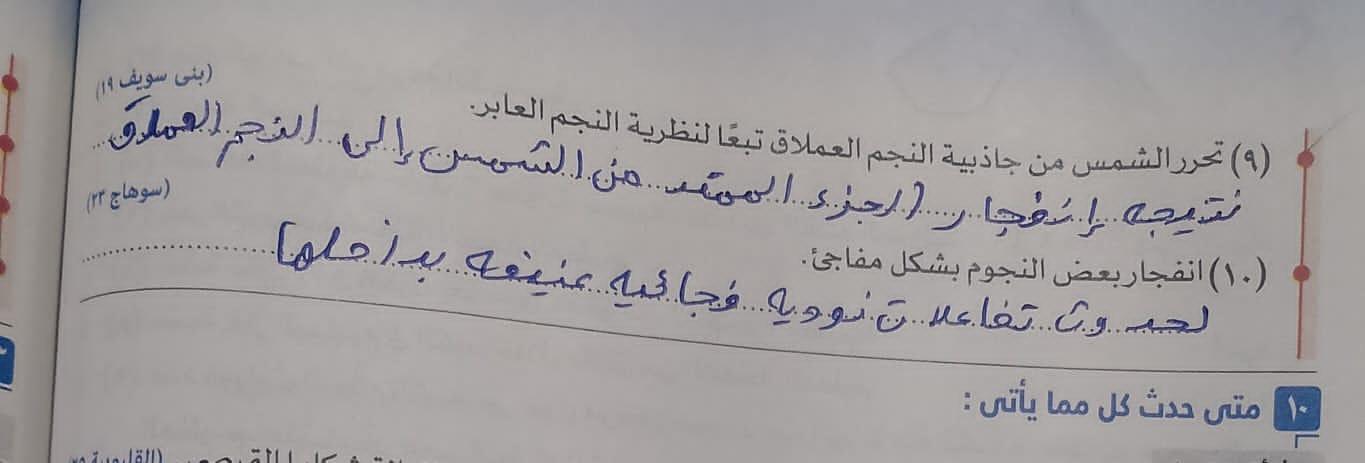 (بنى سويف ١٩)
(٩) تحرر الشمس من جاذبية النجم العملاق تبعًا لنظرية النجم العابر.
نتيجه إنفجار الجزء الممتد من الشمس إلى النجم العملاق
(سوهاج ٢٣)
(١٠) انفجار بعض النجوم بشكل مفاجئ.
لحدوث تفاعلات نوويه فجائيه عنيفه بداخلها
١٠ متى حدث كل مما يأتى :
(القليوبية